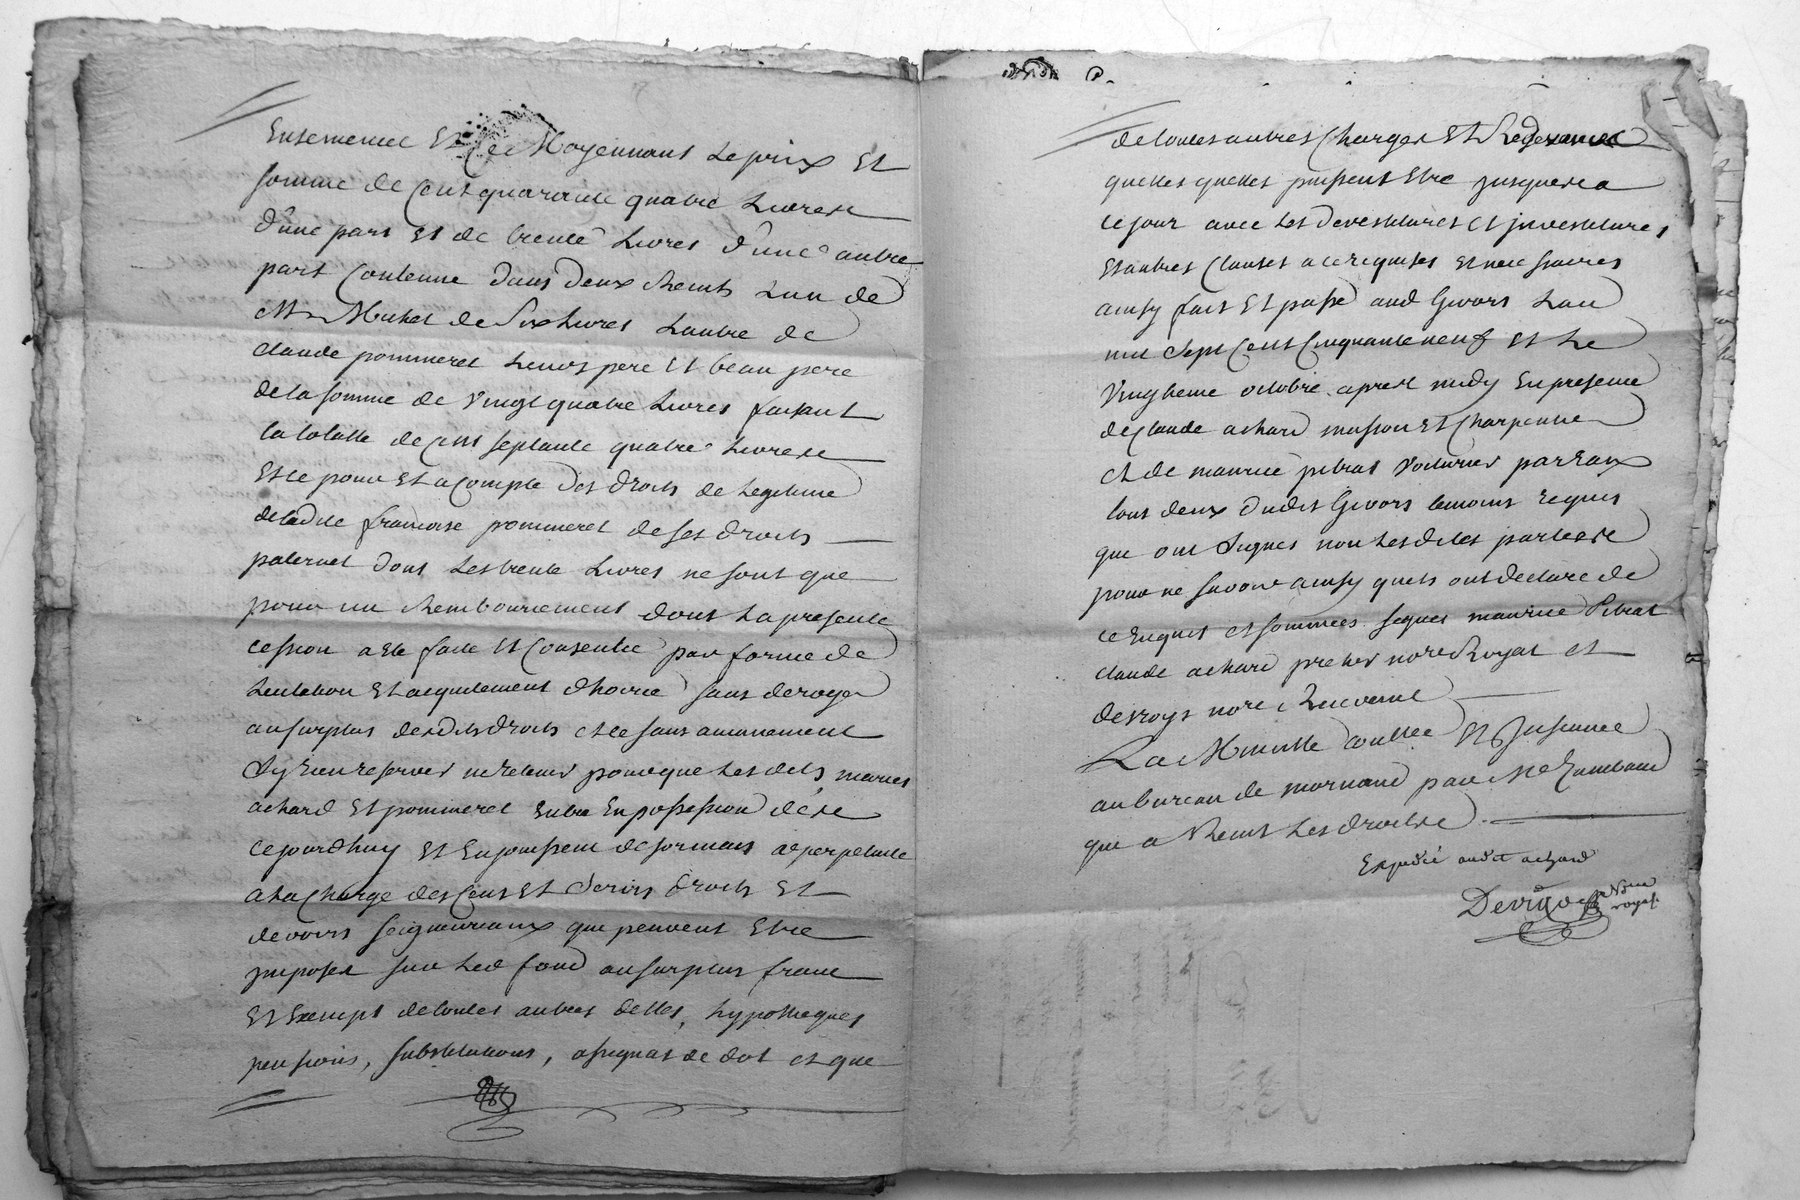 Ensemence Et Ce Moyennant Le prix Et
somme de Cent quarante quatre Livres
d'une part Et de trente Livres d'une autre
part Contenue dans deux Receus Lun de
Mr Michel de six Livres Lautre de
claude pommeret Leurs pere Et beau pere
de la somme de vingt quatre Livres faisant
la totalle de Cent septante quatre Livres
Et ce pour Et a Compte des droits de Legitime
de ladite francoise pommeret de ses droits
paternel dont Les trente Livres ne sont que
pour un Rembourcement dont La presente
cession a ete faite Et Consentie par forme de
au surplus desdits droits et ce sans aucunement
sy rien reserver ne retenir pour que Les dits maries
achard Et pommeret Entre En possession dece
cejourdhuy Et Enjouissent desormais a perpetuite
a La Charge des Cens Et servis droits Et
devoirs seigneuriaux que peuvent Etre
imposes sur Led fond au surplus franc
Et Exempt de toutes autres dettes, hypotheques
pensions, substitutions, assignat de dot et que
de toutes autres Charges Et Redevances
quelles quelles puissent Etre jusques a
ce jour avec Les devestitures et jnvestitures
Et autres Clauses a ce requises Et necessaires
ainsy fait Et passé aud Givors Lan
mil sept Cent Cinquante neuf Et Le
vingtieme octobre apres midy En presence
de Claude achard masson Et Charpentier
et de maurice pitrat voiturier par Eaux
tous deux dudit Givors temoins requis
que ont signes non Lesdites parties
pour ne savoir ainsy quels ont declare de
ce Enquis et sommees signes maurice Pitrat
claude achard notre Royal et
devroys notre Recevant
La Minutte Conllee Et Insinuee
au bureau de mornand par Me
qui a Receus Les droits
Expedié audit achard
Nore
royal.